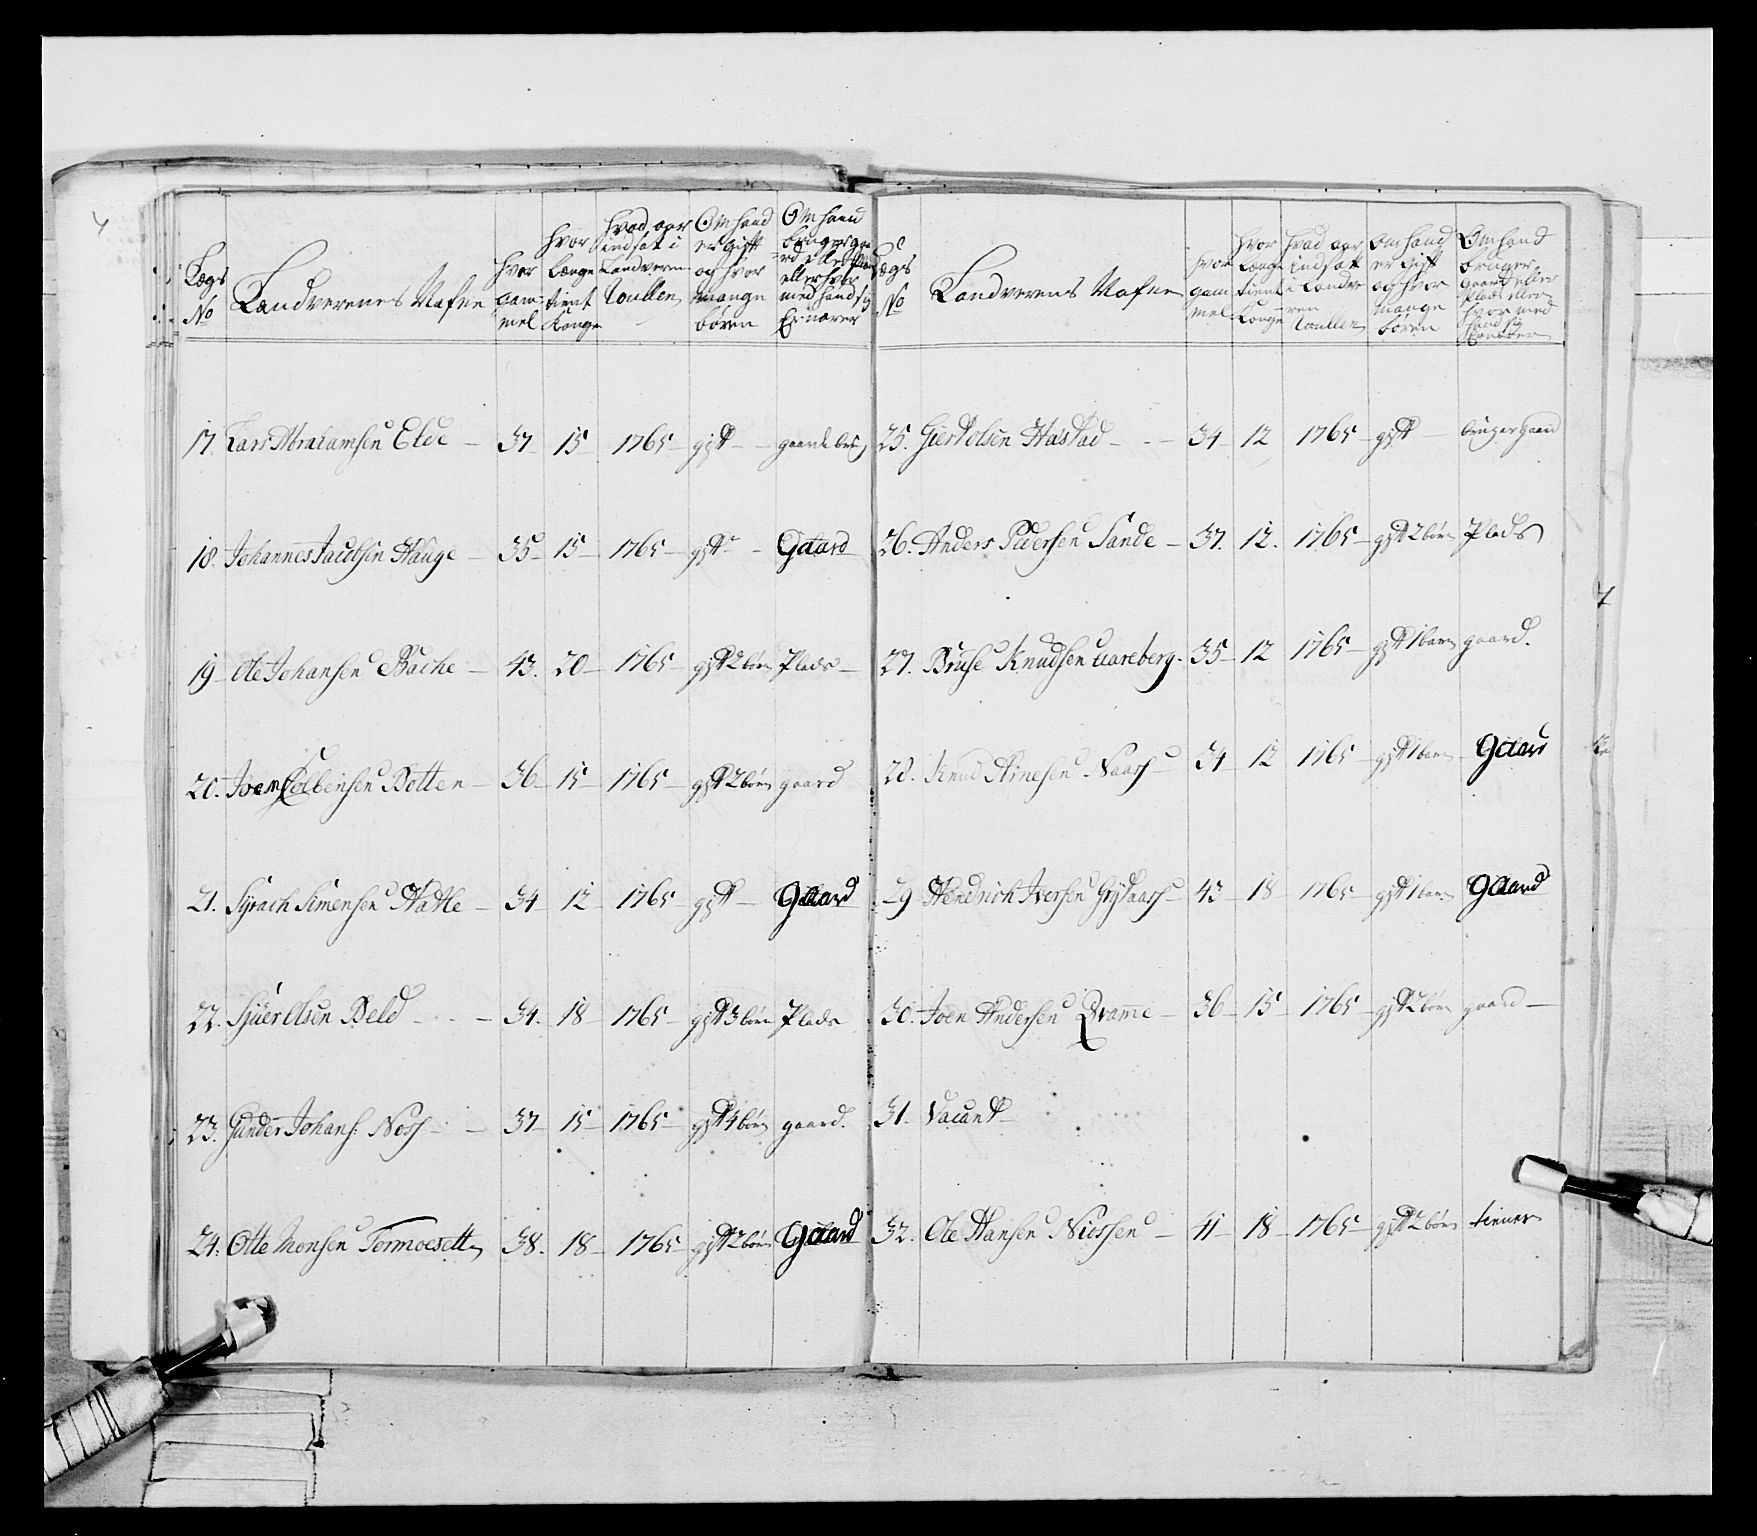 Lægs No | Landverenes Nafne | hvor gam mel | hvor længe tient Konge | hvad aar indsat i Landveren Roullen | Om hand er gift og hvor mange børen | Om hand bruger gaard eller Plads eller hvor med hand sig Ernærer
17. Lars Abrahamsen Eide – 37 – 15 1765 – gift – gaard bru
18. Johannes Jacobsen Hauge – 35 – 15 – 1765 – gift – Gaard
19 – Ole Johansen Bache – 43. 20 – 1765 – gift 2 børn Plads –
20. Joen Colbensen Botten – 36 – 15 – 1765 – gift 2 børn gaard
21. Syrach Simensen Hatle – 34 12 – 1765 gift – Gaard
22. Siuer Olsen Beld – 34. 18 – 1765 – gift 3 børn Plads
23. Gunder Johans: Noss – 37 – 15 – 1765 – gift 4 børn gaard.
24. Otte Monsen Tormoesett 38. 18 – 1765 – gift 2 børn Gaard
Lægs No | Landverens Nafne | hvor gam mel | hvor længe tient Konge | hvad aar indsatt i Landve ren Roullen | Om hand er gift og hvor mange børen | Om hand bruger gaard eller Plads eller hvor med hand sig Ernærer
25. Giert Olsen Hastad – 34 12 1765 – gift – bruger gaard
26. Anders Pedersen Sande – 37. 12. 1765 – gift 2 børn Plads
27. Bruse Knudsen Aareberg. 35 – 12 1765 – gift 1 barn gaard.
28. Knud Arnesen Naass – 34 12 1765 – gift 1 barn Gaard
29 Hendrich Iversen Grytaass – 43 – 18 – 1765 – gift 1 barn Gaard
30. Joen Andersen Qvamme – 36 – 15 – 1765 – gift 2 børn gaard –
31. Vacant –
32. Ole Hansen Niøssen – 41 – 18 – 1765 – gift 2 børn tiener